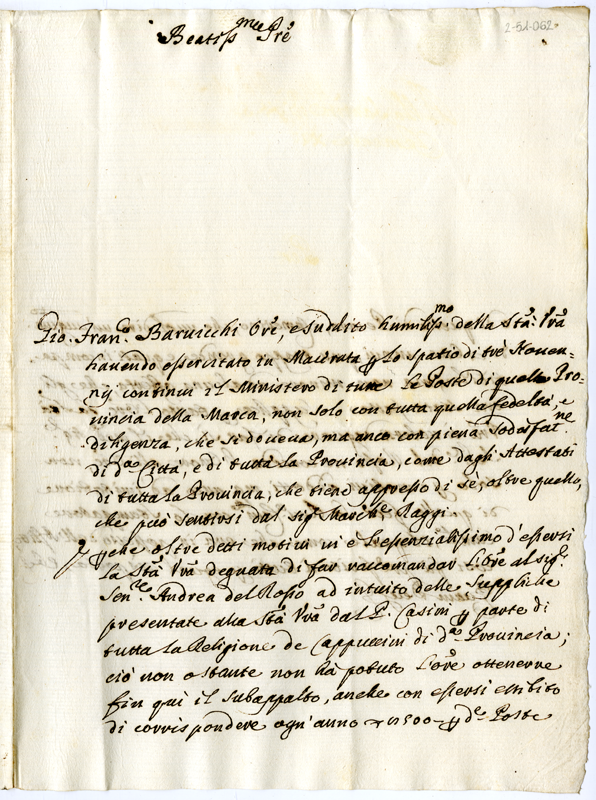 2-51-062
Beatiss.me Pre
Gio. Fran.co Baruicchi Ore, e suddito humiliss.mo della Stà Vrà
hauendo essercitato in Macerata p lo spatio di trè Nouen-
nij continui il Ministero di tutte le Poste di quella Pro-
uincia della Marca, non solo con tutta quella fedeltà, e
diligenza, che si doueua, ma anco con piena sodisfat.ne
di d.a Città, e di tutta la Prouincia, come dagli Attestati
di tutta la Prouincia, che tiene appresso di se, oltre quello,
che può sentirsi dal sig.r March.e Raggi.
E pche oltre detti motiui ui è l'essenzialissimo d'essersi
la Stà Vrà degnata di far raccomandar l'Ore al sig.r
Sen.re Andrea del Rosso ad intuito delle suppliche
presentate alla Stà Vrà dal P. Casini p parte di
tutta la Religione de Cappuccini di d.a Prouincia;
ciò non ostante non hà potuto l'Ore ottenerne
fin quì il subappalto, anche con essersi essibito
di corrispondere ogn'anno 1500 p d.e Poste